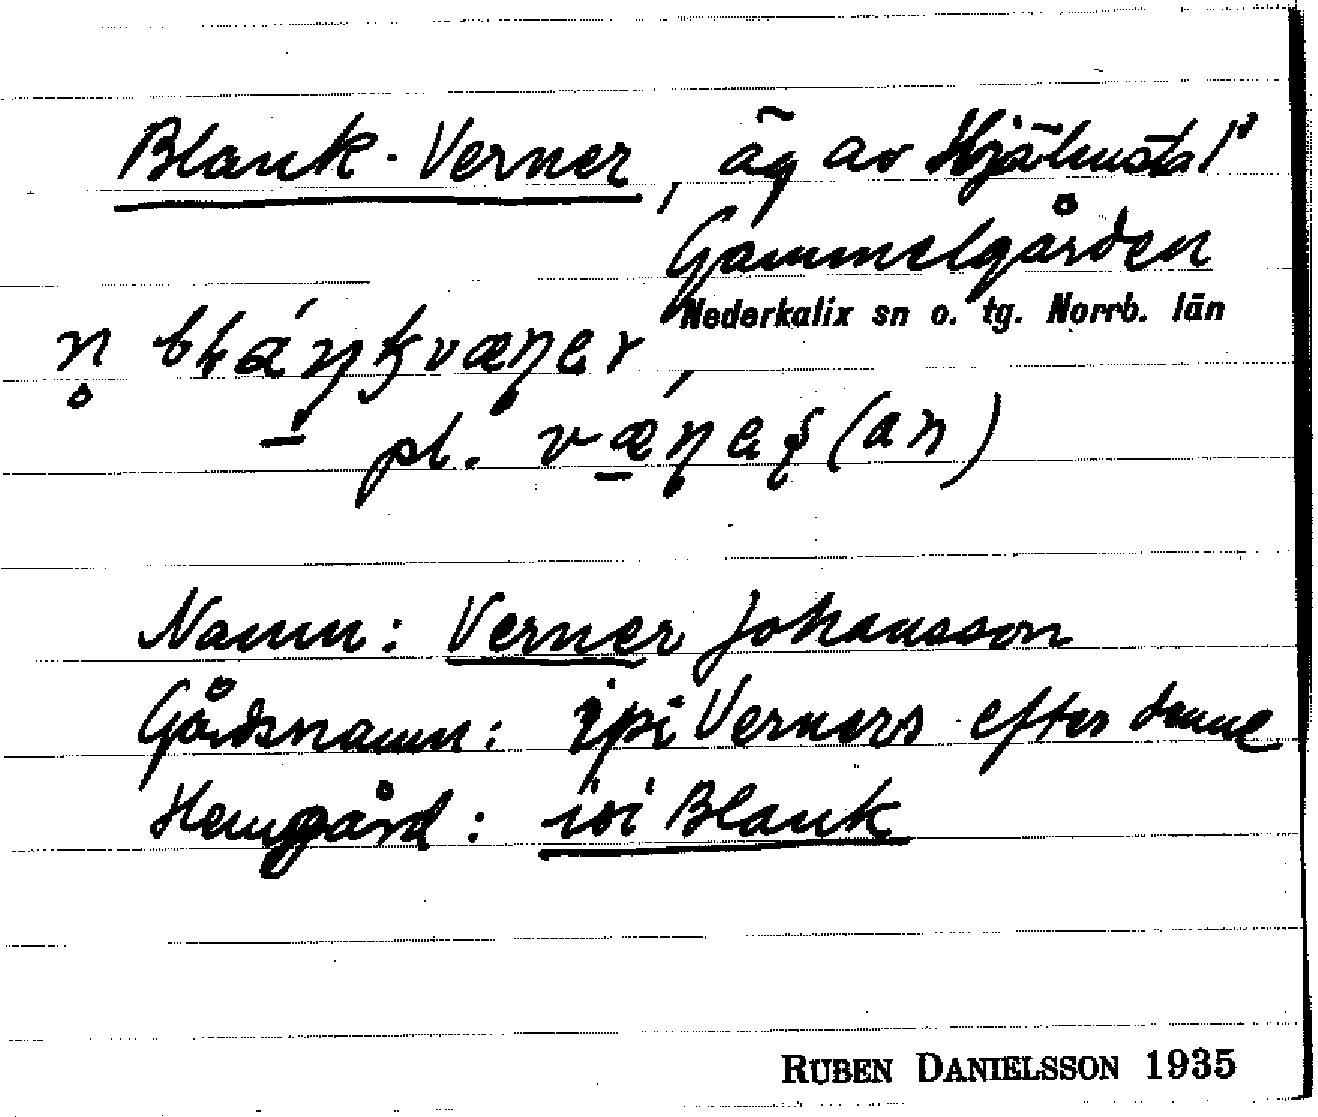 Blank-Verner, äg av Hjälmsdal
Gammelgården
Nederkalix sn o. tg. Norrb. län
pl.
Namn: Verner Johansson
Gårdsnamn: ipi Verners efter denne
Hemgård: ini Blank
RUBEN DANIELSSON 1935